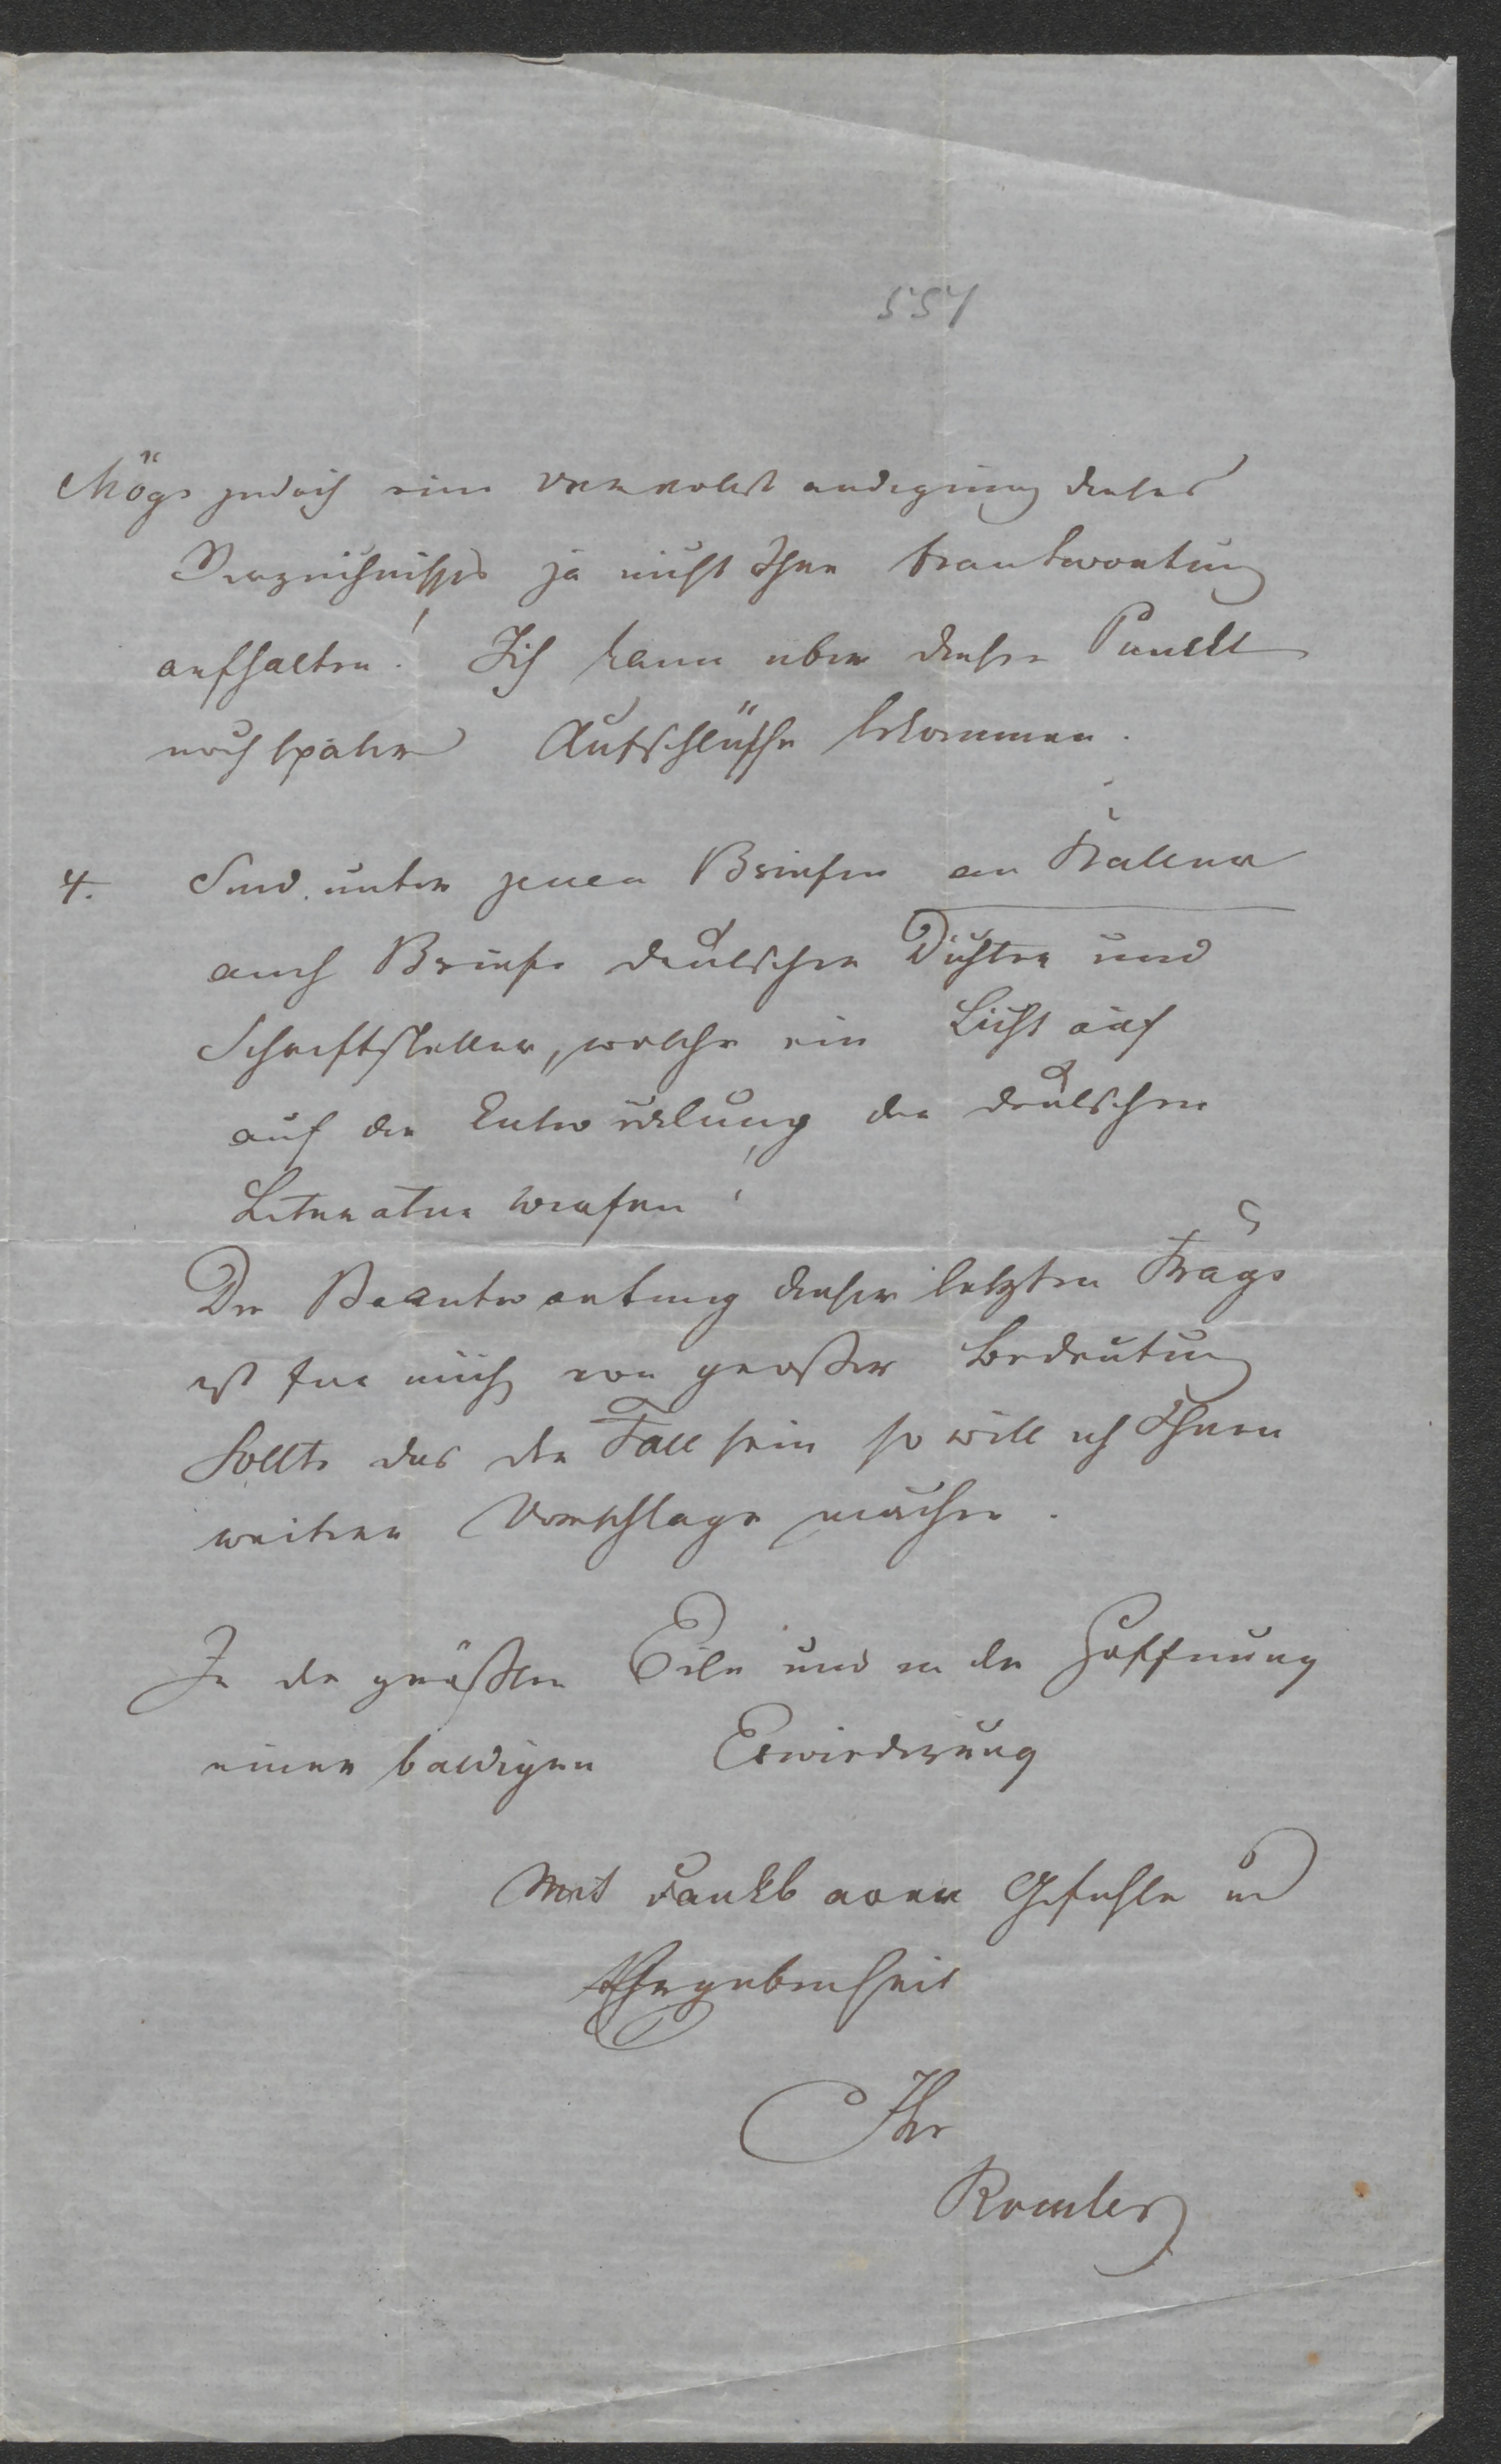 557
Möge jedoch eine vervollständigung dieses
Verzeichnisses ja nicht Ihre beantwortung
aufhalten! Ich kann über diesen Punckt
noch später Aufschlüsse bekommen.
4. Sind unter jenen Briefen an
auch Briefe deutscher Dichter und
Schriftsteller, welche ein Licht auf
auf die Entwicklung der deutschen
Literatur werfen!
Die Beantwortung dieser letzten Frage
ist fur mich von großer Bedeutung
Sollte das der Fall sein so will ich Ihnen
weitere Vorschlage machen.
In der größten Eile und in der Hoffnung
einer baldigen Erwiederung
Mit dankbarem Gefuhle und
Ergebenheit
Ihr